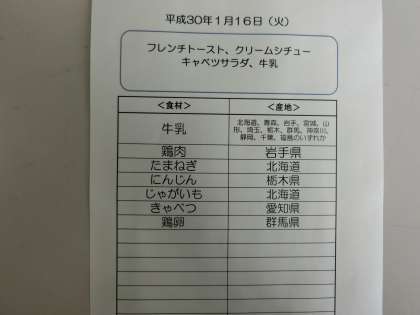 平成30年1月16日（火）
フレンチトースト、クリームシチュー
キャベツサラダ、牛乳
＜食材＞ ＜産地＞
牛乳 北海道、青森、岩手、宮城、山
形、埼玉、栃木、群馬、神奈川、
静岡、千葉、福島のいずれか
鶏肉 岩手県
たまねぎ 北海道
にんじん 栃木県
じゃがいも 北海道
きゃべつ 愛知県
鶏卵 群馬県